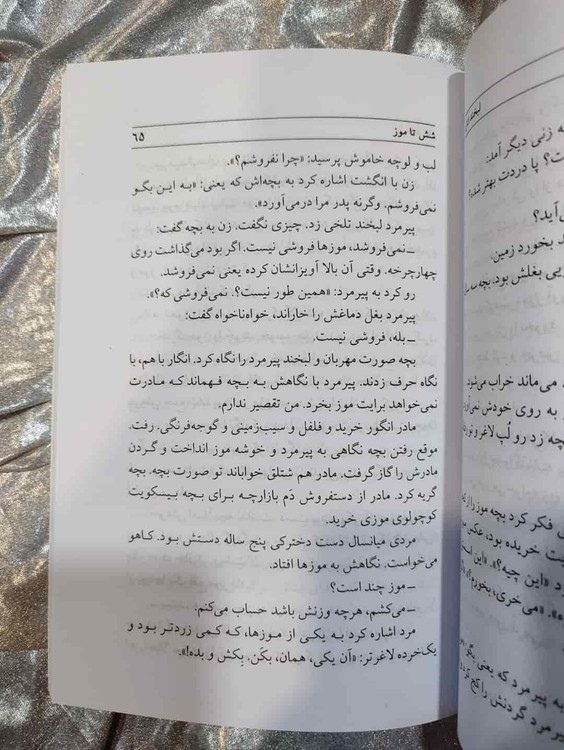 شش تا موز ۶۵
لب و لوچه خاموش پرسید: «چرا نفروشم؟».
زن با انگشت اشاره کرد به بچه‌اش که یعنی: «به این بگو
نمی‌فروشم. وگرنه پدر مرا درمی‌آورد».
پیرمرد لبخند تلخی زد. چیزی نگفت. زن به بچه گفت:
ـ نمی‌فروشد، موزها فروشی نیست. اگر بود می‌گذاشت روی
چهارچرخه. وقتی آن بالا آویزانشان کرده یعنی نمی‌فروشد.
رو کرد به پیرمرد: «همین طور نیست؟. نمی‌فروشی که؟».
پیرمرد بغل دماغش را خاراند، خواه‌ناخواه گفت:
ـ بله، فروشی نیست.
بچه صورت مهربان و لبخند پیرمرد را نگاه کرد. انگار با هم، با
نگاه حرف زدند. پیرمرد با نگاهش به بچه فهماند که مادرت
نمی‌خواهد برایت موز بخرد. من تقصیر ندارم.
مادر انگور خرید و فلفل و سیب‌زمینی و گوجه‌فرنگی. رفت.
موقع رفتن بچه نگاهی به پیرمرد و خوشه موز انداخت و گردن
مادرش را گاز گرفت. مادر هم شتلق خواباند تو صورت بچه. بچه
گریه کرد. مادر از دستفروش دَم بازارچه برای بچه بیسکویت
کوچولوی موزی خرید.
مردی میانسال دست دخترکی پنج ساله دستش بود. کاهو
می‌خواست. نگاهش به موزها افتاد.
ـ موز چند است؟
ـ می‌کشم، هرچه وزنش باشد حساب می‌کنم.
مرد اشاره کرد به یکی از موزها، که کمی زردتر بود و
یک‌خرده لاغرتر: «آن یکی، همان، بکَن. بِکش و بده!».
لبخند
ه زنی دیگر آمد:
ت؟ پا دردت بهتر شد؟
می‌آید؟
د بخورد زمین.
یی بغلش بود. بچه سه سا
د می‌ماند خراب می‌شود
به روی خودش نمی‌آورد
چه زد رو لُپ لاغر و
فکر کرد بچه موز را از
یت خریده بود، عکس مو
د «این چیه؟». «این
«می‌خری، بخوریم؟»
به پیرمرد که یعنی بگو
یرمرد گردنش را کج کرد و